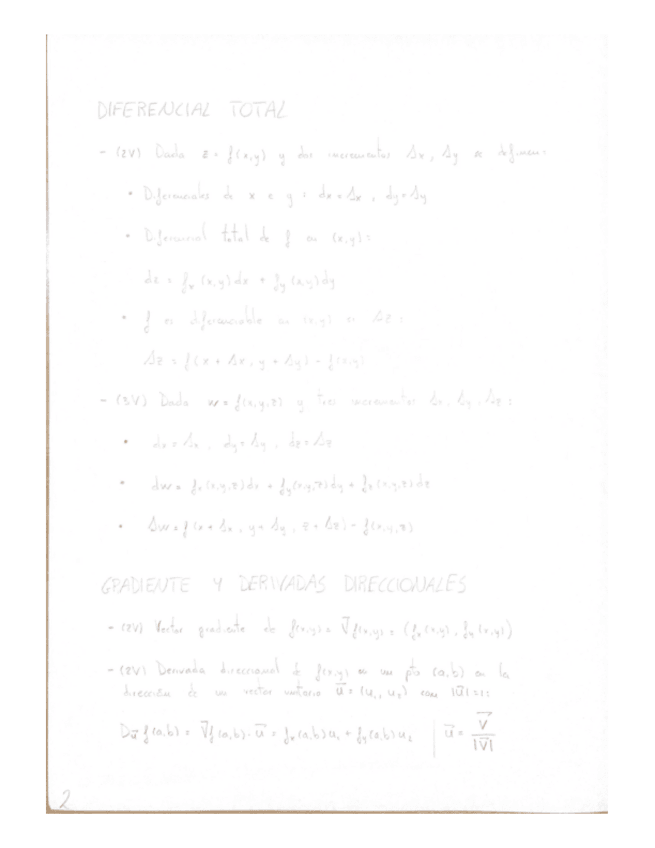 DIFERENCIAL TOTAL
- (2V) Dada z = f(x,y) y dos incrementos Δx, Δy se definen:
• Diferenciales de x e y: dx = Δx, dy = Δy
• Diferencial total de f en (x,y):
dz = fx (x,y)dx + fy (x,y)dy
• f es diferenciable en (x,y) si Δz:
Δz = f(x + Δx, y + Δy) - f(x,y)
- (3V) Dada w = f(x,y,z) y tres incrementos Δx, Δy, Δz:
• dx = Δx, dy = Δy, dz = Δz
• dw = fx (x,y,z)dx + fy (x,y,z)dy + fz (x,y,z)dz
• Δw = f (x + Δx, y + Δy, z + Δz) - f(x,y,z)
GRADIENTE Y DERIVADAS DIRECCIONALES
- (2V) Vector gradiente de f(x,y) = ∇f(x,y) = (fx (x,y), fy (x,y))
- (2V) Derivada direccional de f(x,y) en un pto (a,b) en la
dirección de un vector unitario u⃗ = (u₁, u₂) con |u⃗| = 1:
Du⃗ f(a,b) = ∇f(a,b) · u⃗ = fx (a,b)u₁ + fy (a,b)u₂ | u⃗ = v⃗ / |v⃗|
2